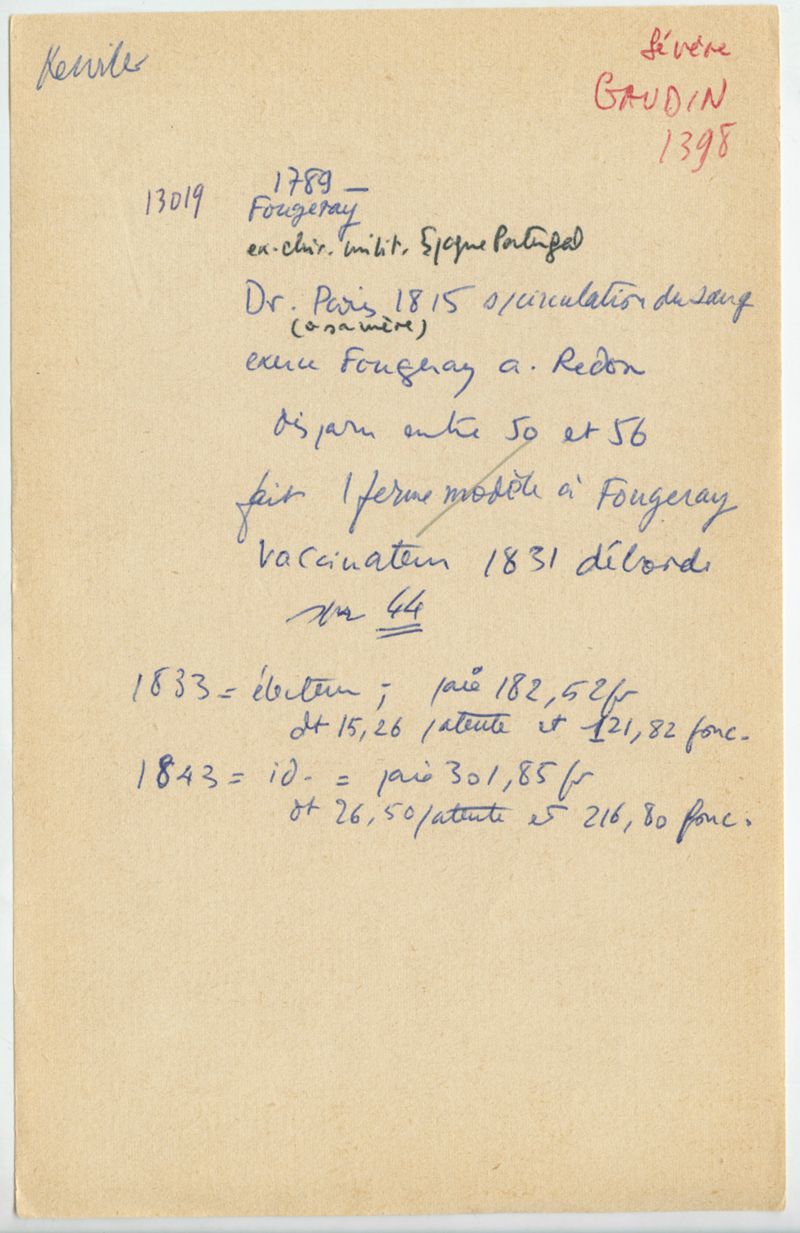 Kerviler
Sévère
GAUDIN
1398
13019 1789 —
Fougeray
ex-chir. milit. Espagne Portugal
Dr. Paris 1815 s/circulation du sang
(à sa mère)
exerce Fougeray a. Redon
disparu entre 50 et 56
fait 1 ferme modèle à Fougeray
vaccinateur 1831 débordé
sur 44
1833 = électeur ; paie 182,52 fr
dt 15,26 patente et 121,82 fonc.
1843 = id. = paie 301,85 fr
dt 26,50 patente et 216,80 fonc.